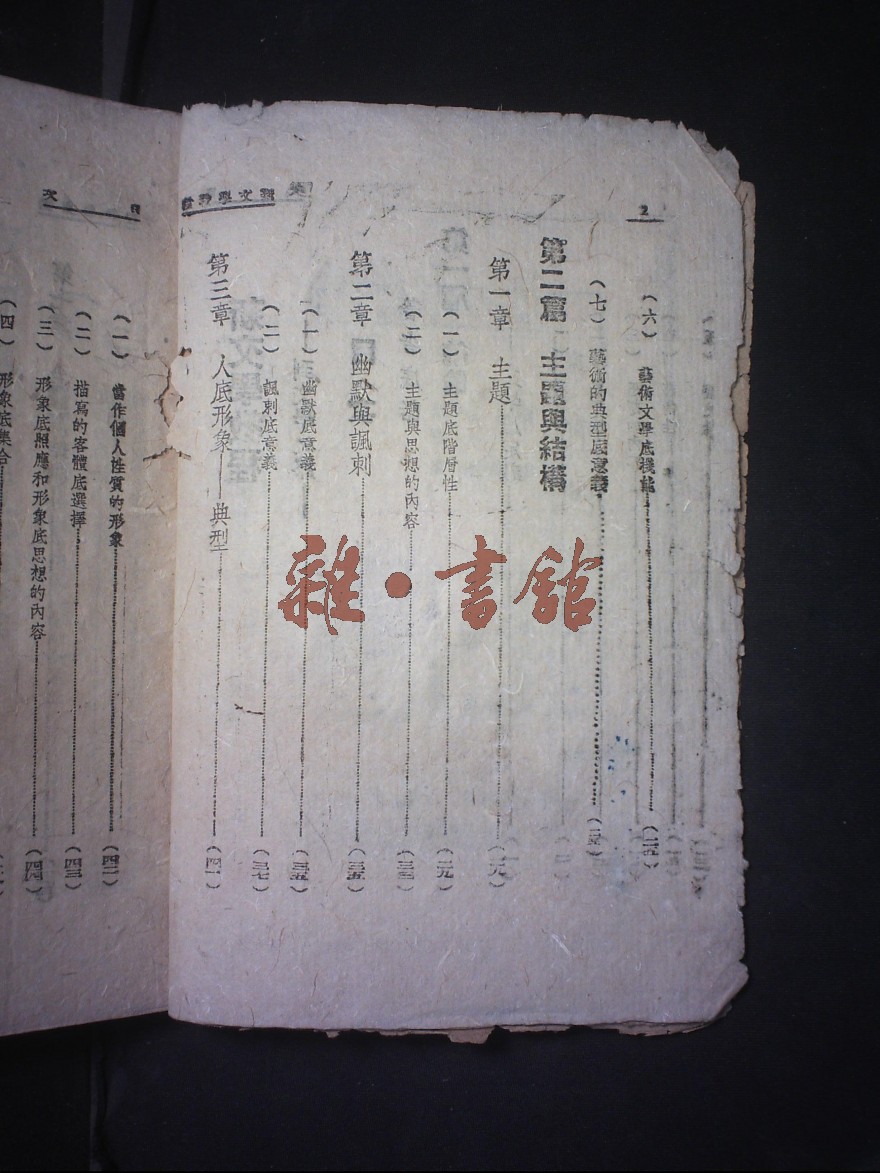 2
新文學教程
(六) 藝術文學底機能
(七) 藝術的典型底意義
第二篇 主題與結構
第一章 主題 (二八)
(一) 主題底階層性 (二九)
(二) 主題與思想的內容
第二章 幽默與諷刺 (三五)
(一) 幽默底意義 (三五)
(二) 諷刺底意義 (三七)
第三章 人底形象——典型 (四一)
目次
(一) 當作個人性質的形象 (四二)
(二) 描寫的客體底選擇 (四三)
(三) 形象底照應和形象底思想的內容
(四) 形象底集合
雜·書館